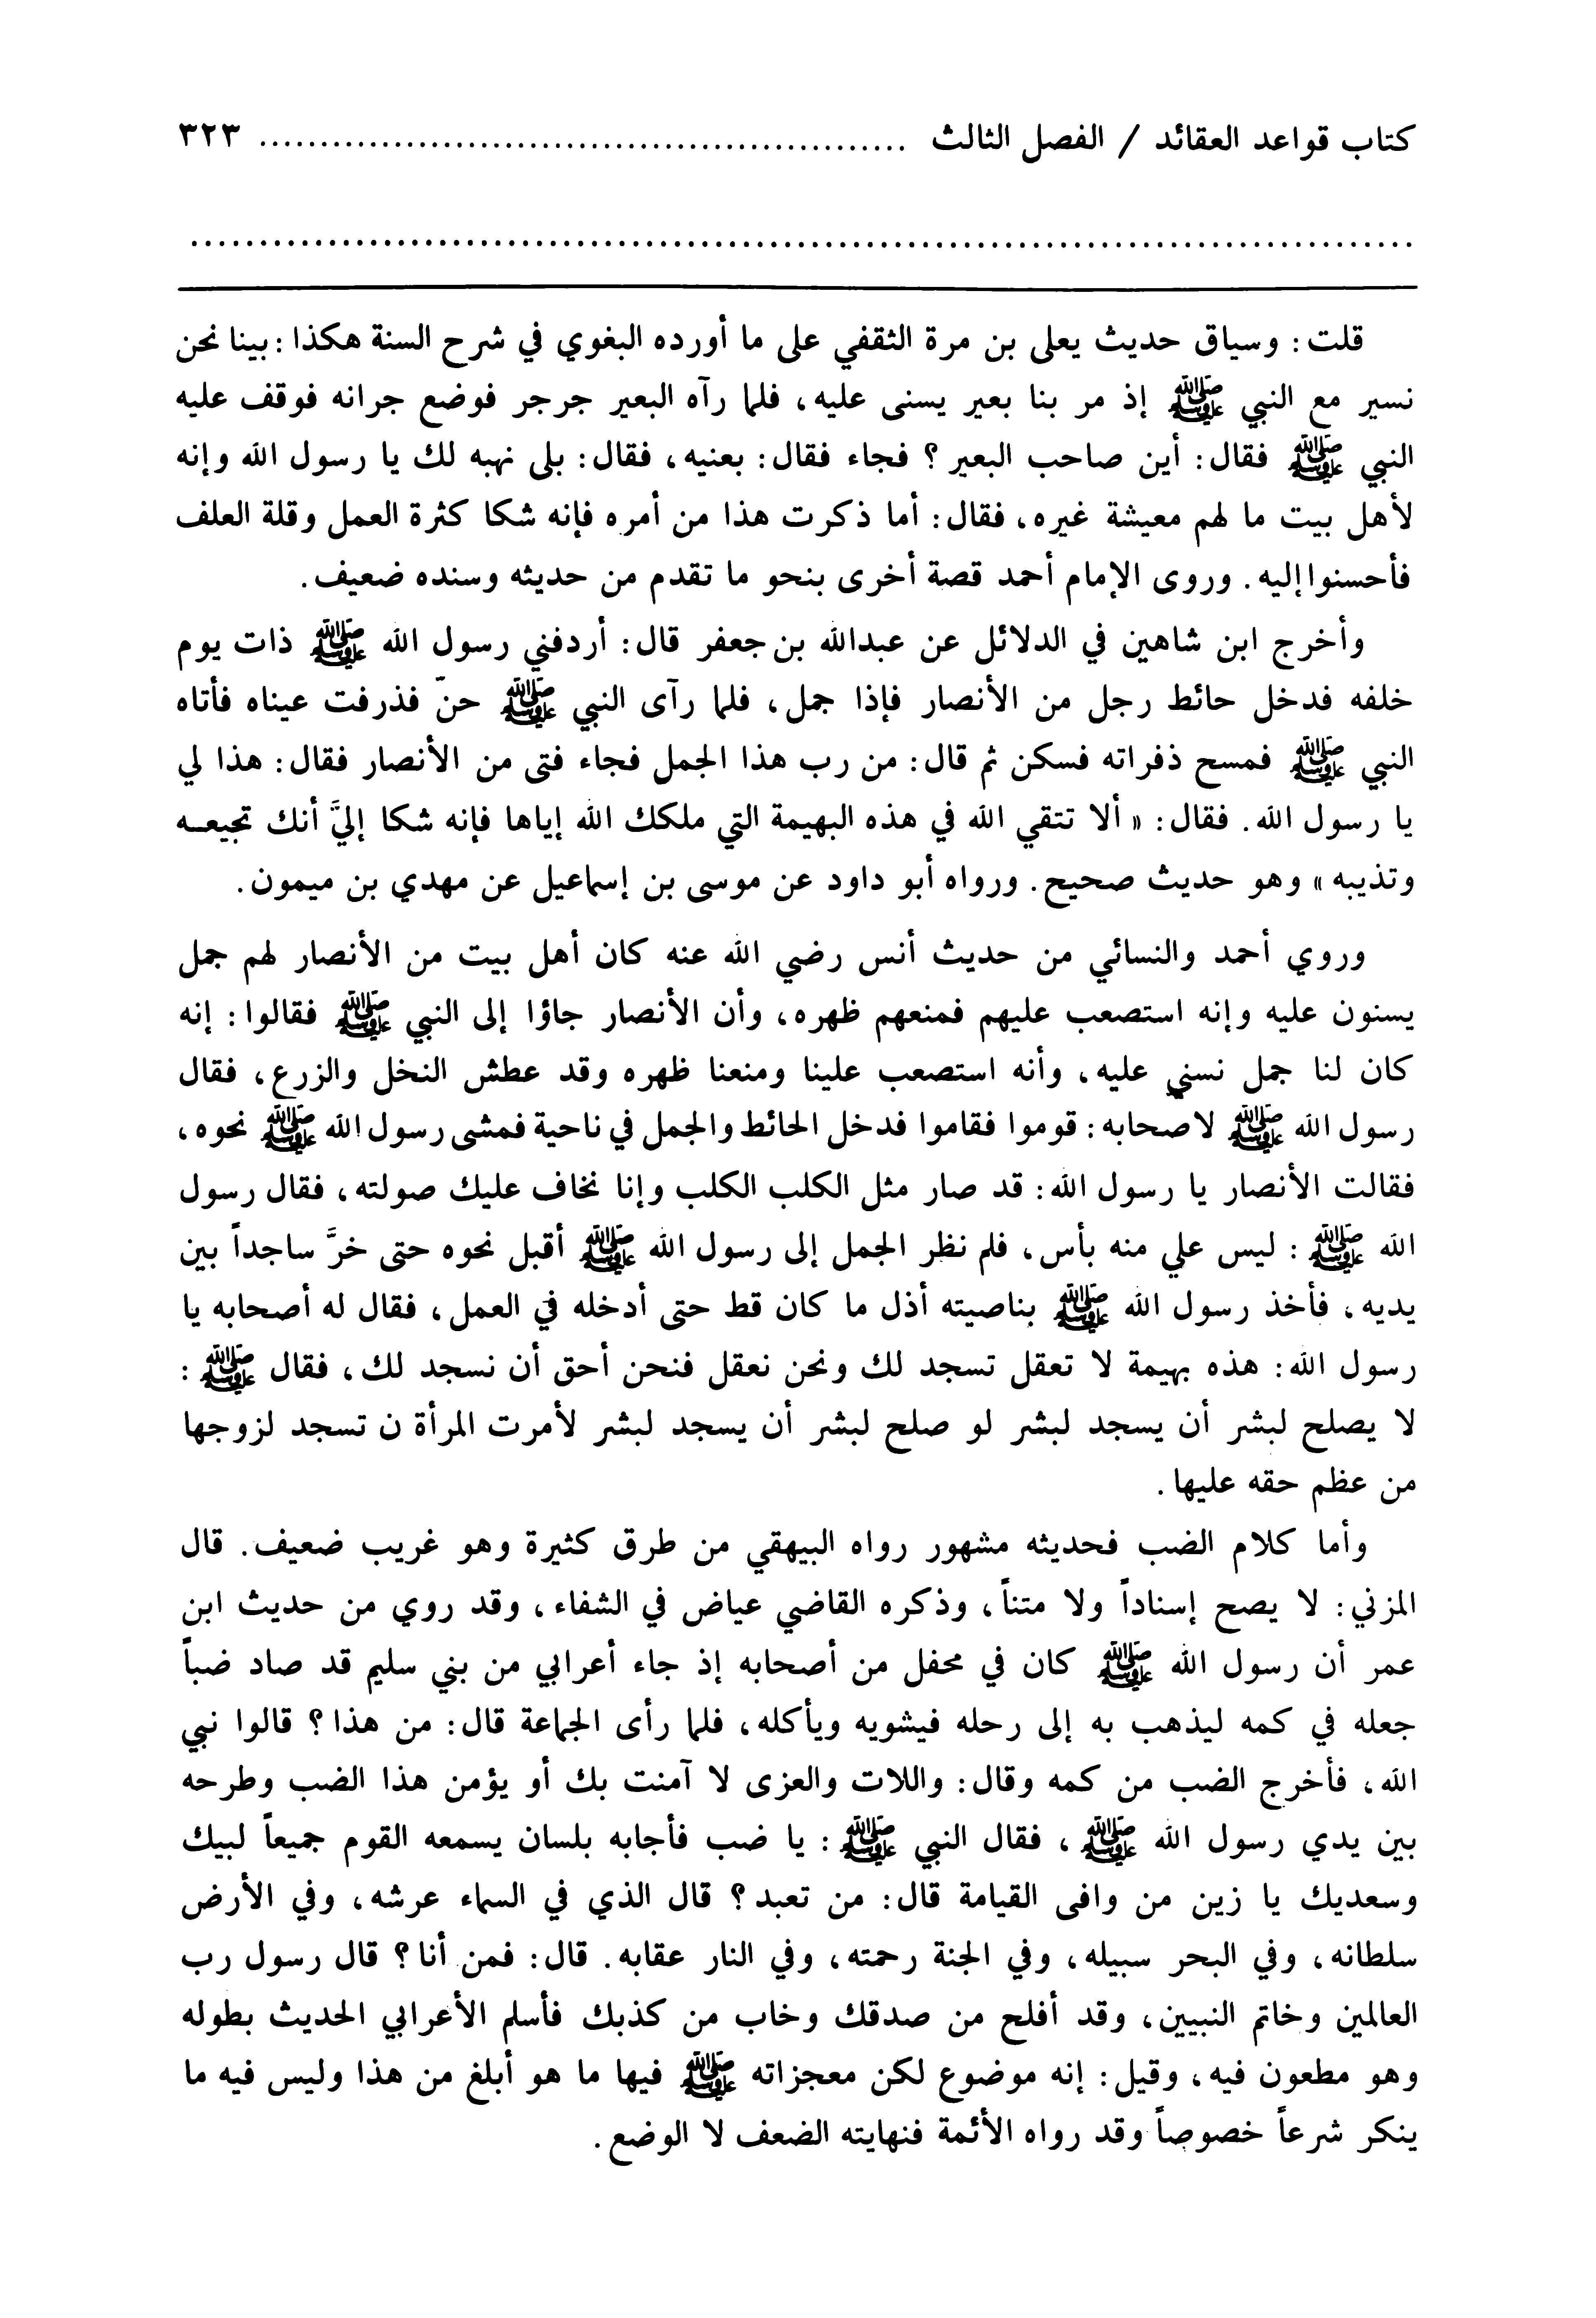 كتاب قواعد العقائد / الفصل الثالث ..................................................... ٣٢٣
..........................................................................................
قلت: وسياق حديث يعلى بن مرة الثقفي على ما أورده البغوي في شرح السنة هكذا: بينا نحن
نسير مع النبي ﷺ إذ مر بنا بعير يسنى عليه، فلما رآه البعير جرجر فوضع جرانه فوقف عليه
النبي ﷺ فقال: أين صاحب البعير؟ فجاء فقال: بعنيه، فقال: بلى نهبه لك يا رسول الله وإنه
لأهل بيت ما لهم معيشة غيره، فقال: أما ذكرت هذا من أمره فإنه شكا كثرة العمل وقلة العلف
فأحسنوا إليه. وروى الإمام أحمد قصة أخرى بنحو ما تقدم من حديثه وسنده ضعيف.
وأخرج ابن شاهين في الدلائل عن عبدالله بن جعفر قال: أردفني رسول الله ﷺ ذات يوم
خلفه فدخل حائط رجل من الأنصار فإذا جمل، فلما رآى النبي ﷺ حنّ فذرفت عيناه فأتاه
النبي ﷺ فمسح ذفراته فسكن ثم قال: من رب هذا الجمل فجاء فتى من الأنصار فقال: هذا لي
يا رسول الله. فقال: « ألا تتقي الله في هذه البهيمة التي ملكك الله إياها فإنه شكا إليَّ أنك تجيعـه
وتذيبه » وهو حديث صحيح. ورواه أبو داود عن موسى بن إسماعيل عن مهدي بن ميمون.
وروي أحمد والنسائي من حديث أنس رضي الله عنه كان أهل بيت من الأنصار لهم جمل
يسنون عليه وإنه استصعب عليهم فمنعهم ظهره، وأن الأنصار جاؤا إلى النبي ﷺ فقالوا: إنه
كان لنا جمل نسني عليه، وأنه استصعب علينا ومنعنا ظهره وقد عطش النخل والزرع، فقال
رسول الله ﷺ لاصحابه: قوموا فقاموا فدخل الحائط والجمل في ناحية فمشى رسول الله ﷺ نحوه،
فقالت الأنصار يا رسول الله: قد صار مثل الكلب الكلب وإنا نخاف عليك صولته، فقال رسول
الله ﷺ: ليس علي منه بأس، فلم نظر الجمل إلى رسول الله ﷺ أقبل نحوه حتى خرَّ ساجداً بين
يديه، فأخذ رسول الله ﷺ بناصيته أذل ما كان قط حتى أدخله في العمل، فقال له أصحابه يا
رسول الله: هذه بهيمة لا تعقل تسجد لك ونحن نعقل فنحن أحق أن نسجد لك، فقال ﷺ:
لا يصلح لبشر أن يسجد لبشر لو صلح لبشر أن يسجد لبشر لأمرت المرأة ن تسجد لزوجها
من عظم حقه عليها.
وأما كلام الضب فحديثه مشهور رواه البيهقي من طرق كثيرة وهو غريب ضعيف. قال
المزني: لا يصح إسناداً ولا متناً، وذكره القاضي عياض في الشفاء، وقد روي من حديث ابن
عمر أن رسول الله ﷺ كان في محفل من أصحابه إذ جاء أعرابي من بني سليم قد صاد ضباً
جعله في كمه ليذهب به إلى رحله فيشويه ويأكله، فلما رأى الجماعة قال: من هذا؟ قالوا نبي
الله، فأخرج الضب من كمه وقال: واللات والعزى لا آمنت بك أو يؤمن هذا الضب وطرحه
بين يدي رسول الله ﷺ، فقال النبي ﷺ: يا ضب فأجابه بلسان يسمعه القوم جميعاً لبيك
وسعديك يا زين من وافى القيامة قال: من تعبد؟ قال الذي في السماء عرشه، وفي الأرض
سلطانه، وفي البحر سبيله، وفي الجنة رحمته، وفي النار عقابه. قال: فمن أنا؟ قال رسول رب
العالمين وخاتم النبيين، وقد أفلح من صدقك وخاب من كذبك فأسلم الأعرابي الحديث بطوله
وهو مطعون فيه، وقيل: إنه موضوع لكن معجزاته ﷺ فيها ما هو أبلغ من هذا وليس فيه ما
ينكر شرعاً خصوصاً وقد رواه الأئمة فنهايته الضعف لا الوضع.